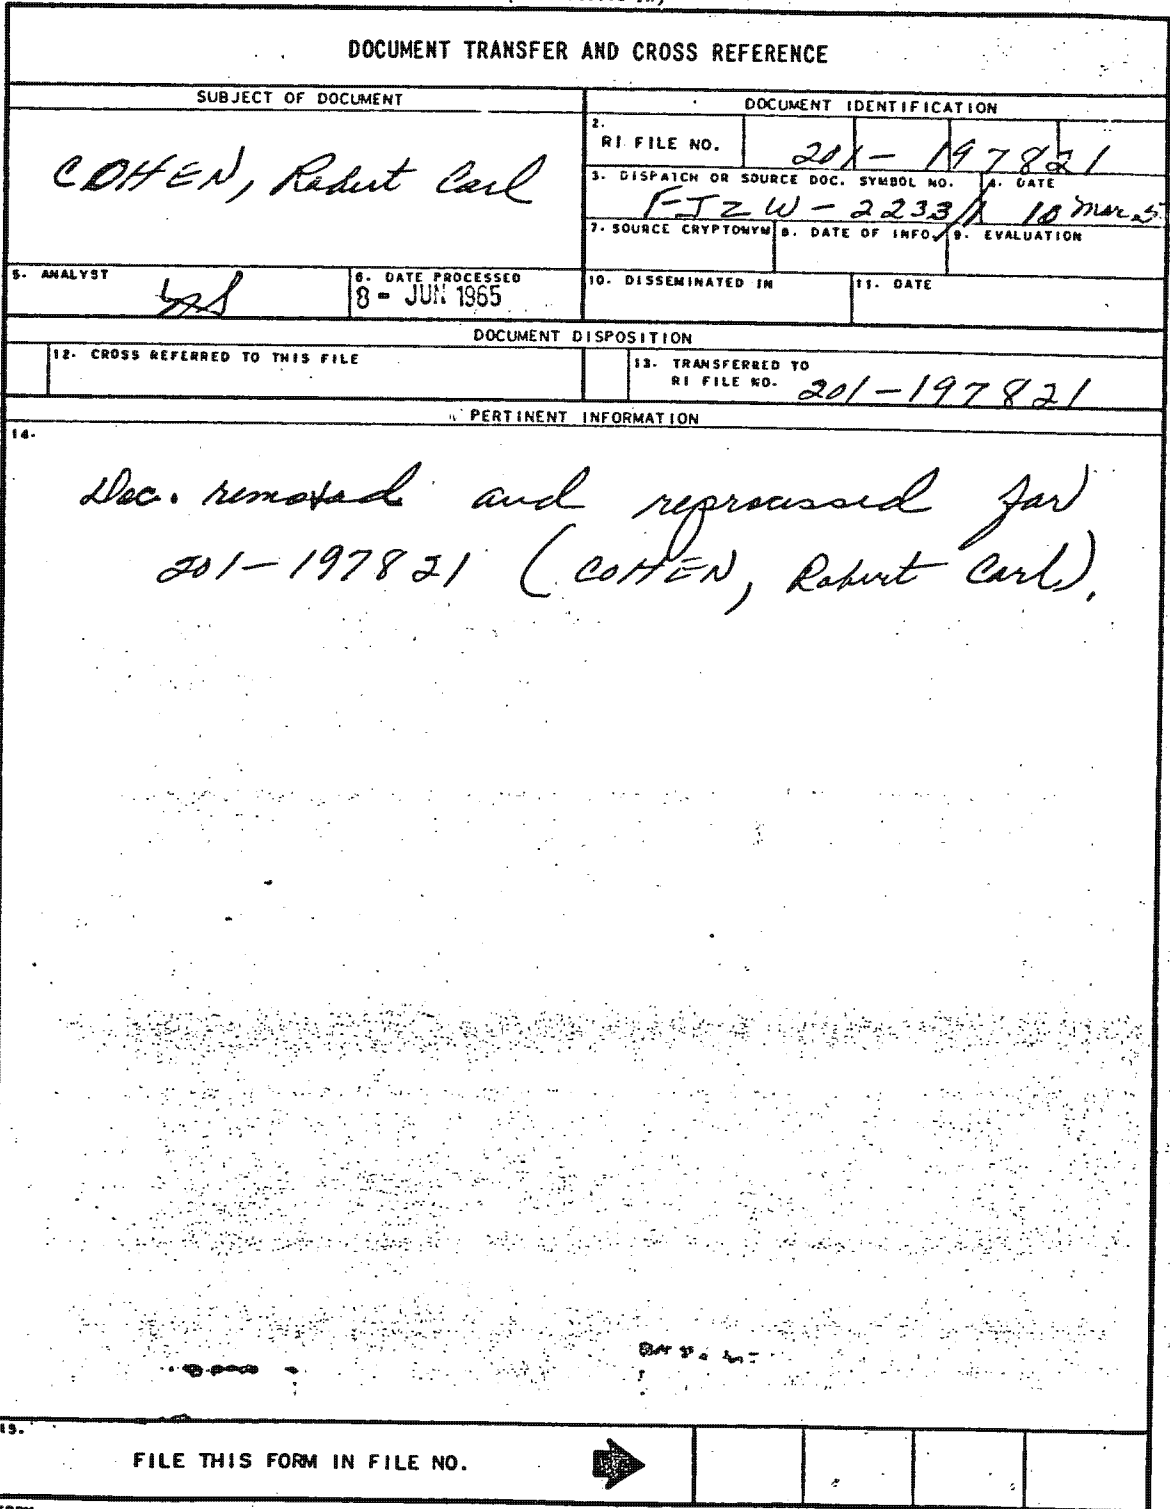 DOCUMENT TRANSFER AND CROSS REFERENCE
SUBJECT OF DOCUMENT
DOCUMENT IDENTIFICATION
COHEN, Robert Carl
2.
RI FILE NO.
201-197821
3. DISPATCH OR SOURCE DOC. SYMBOL NO.
4. DATE
10 Mar 5
7. SOURCE CRYPTONYM
8. DATE OF INFO.
9. EVALUATION
5. ANALYST
6. DATE PROCESSED
8 - JUN 1965
10. DISSEMINATED IN
11. DATE
DOCUMENT DISPOSITION
12. CROSS REFERRED TO THIS FILE
13. TRANSFERRED TO
RI FILE NO. 201-197821
PERTINENT INFORMATION
14.
Doc. removed and reprocessed for
201-197821 (COHEN, Robert Carl).
15.
FILE THIS FORM IN FILE NO.